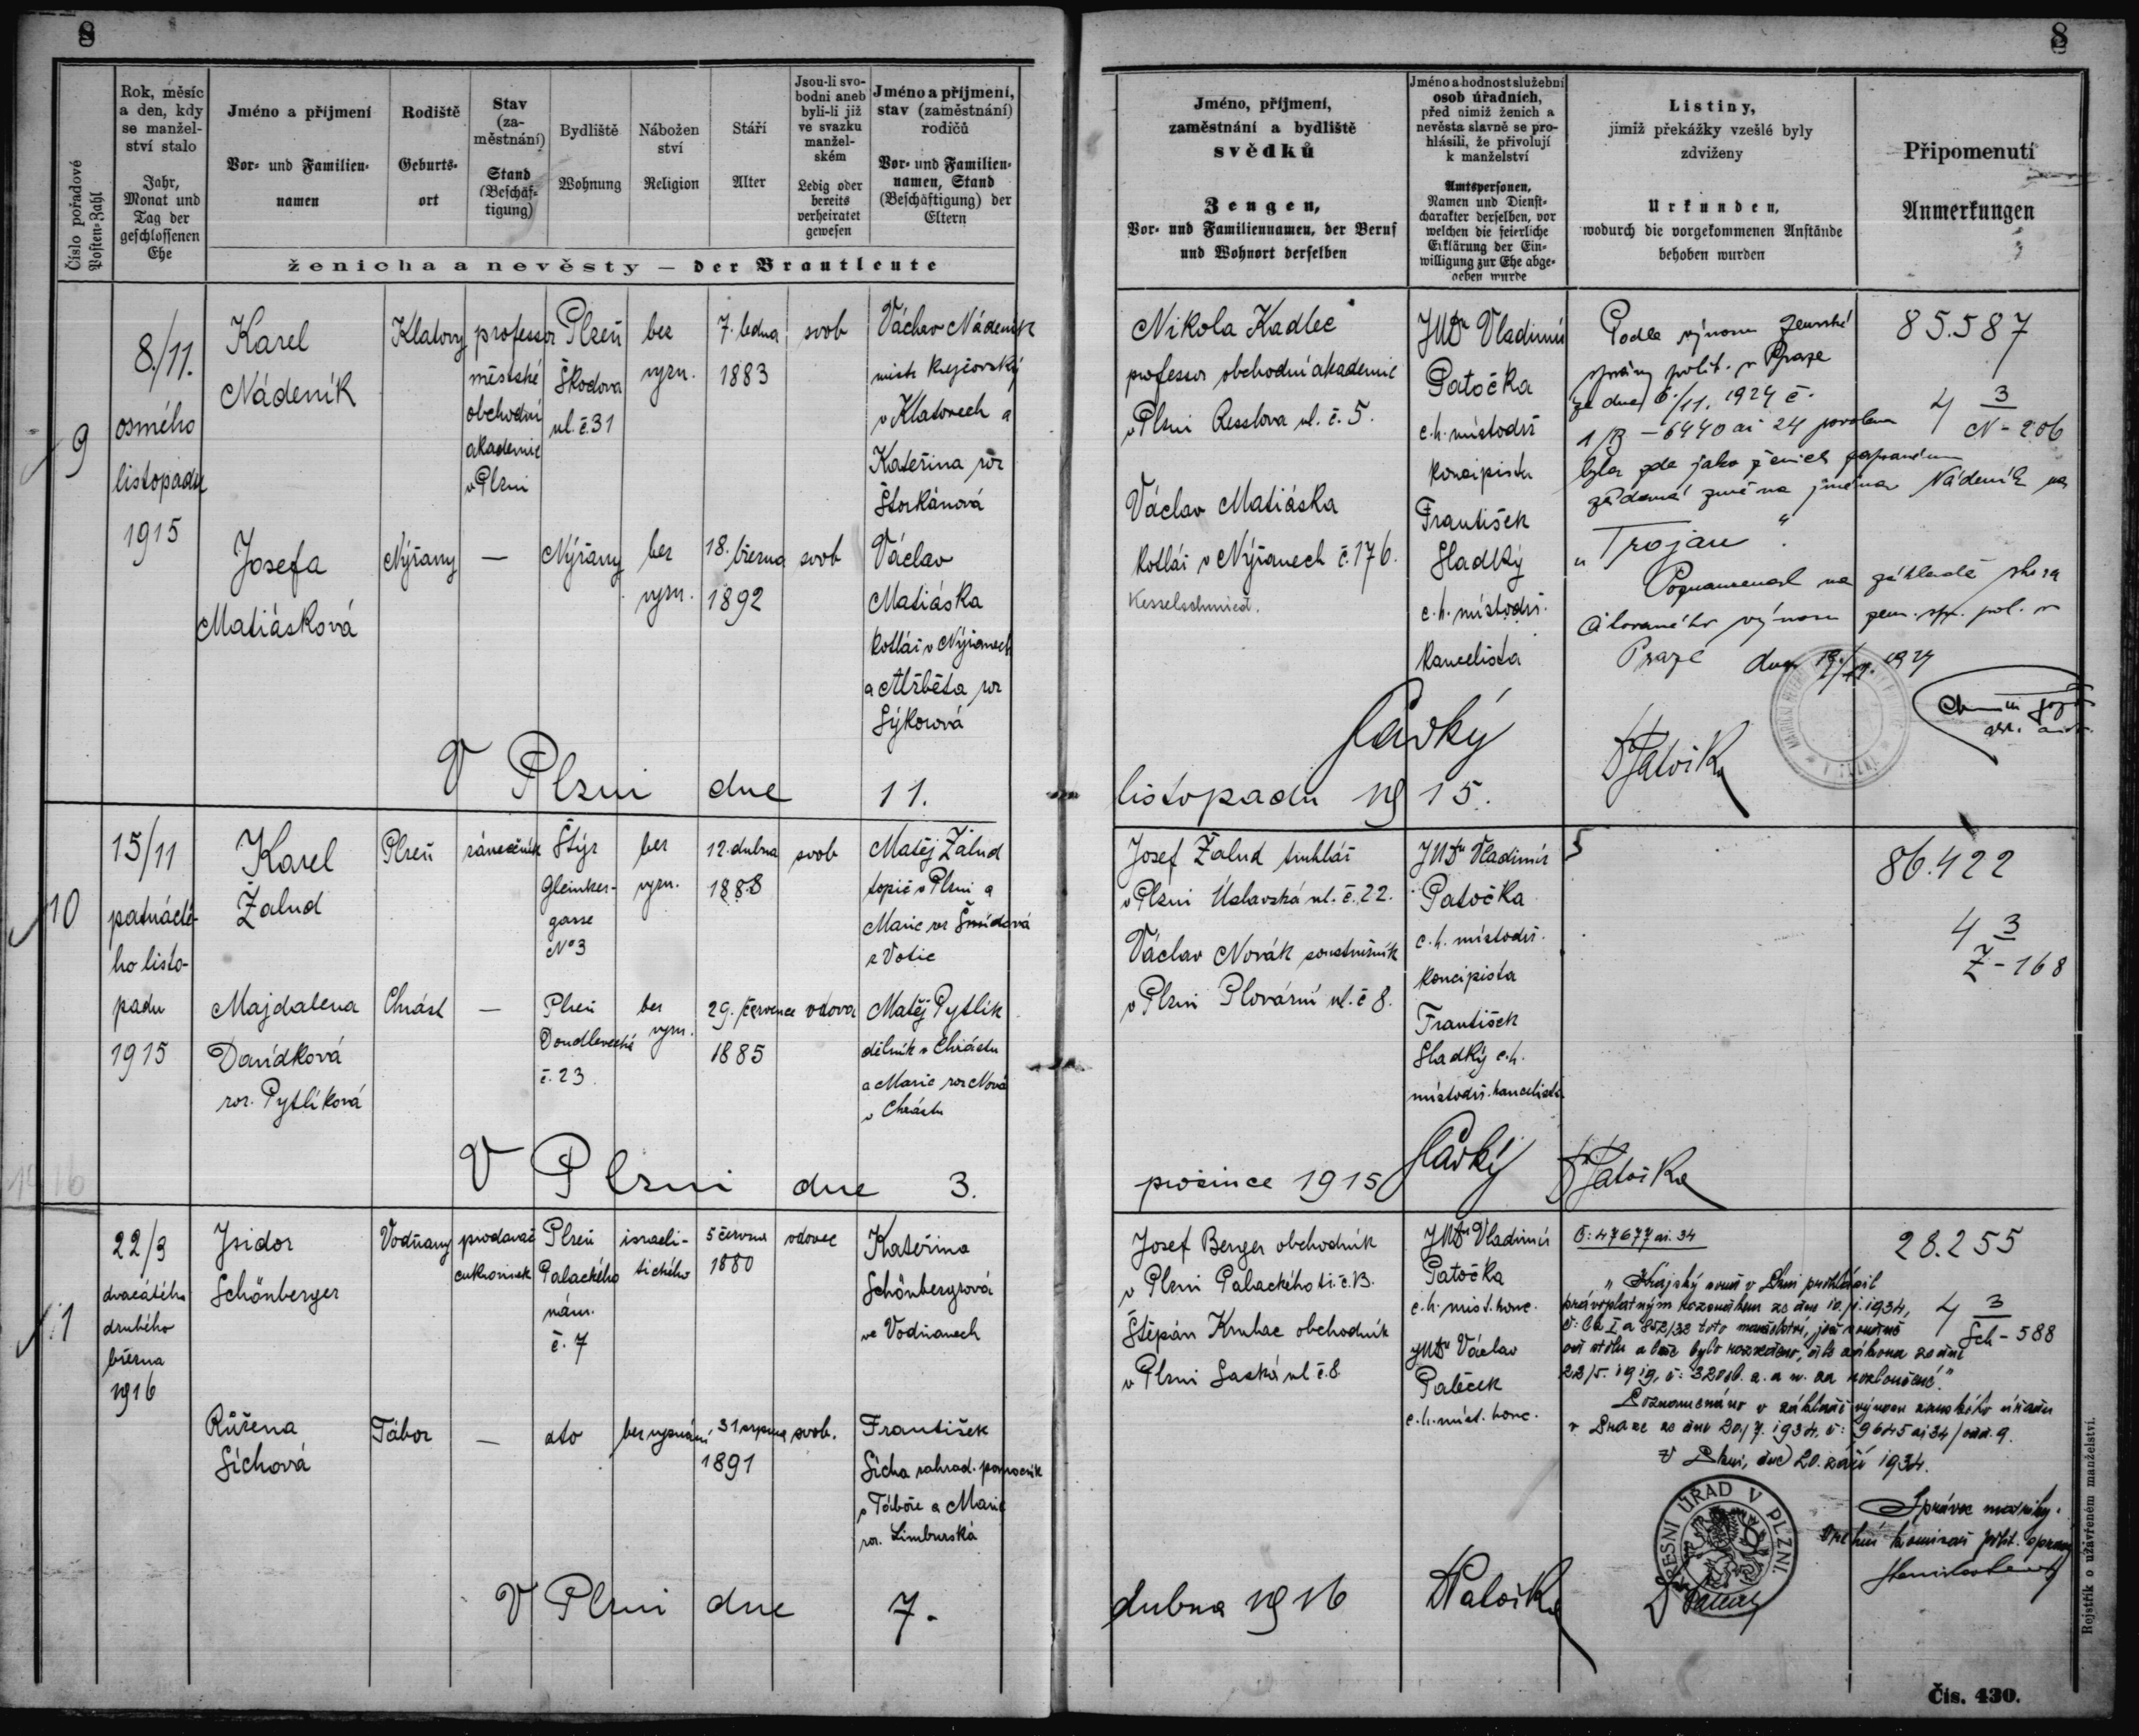 8
8
Číslo pořadové
Posten-Zahl
Rok, měsíc
a den, kdy
se manžel-
ství stalo
Jahr,
Monat und
Tag der
geschlossenen
Ehe
Jméno a příjmení
Vor- und Familien-
namen
Rodiště
Geburts-
ort
Stav
(za-
městnání)
Stand
(Beschäf-
tigung)
Bydliště
Wohnung
Nábožen
ství
Religion
Stáří
Alter
Jsou-li svo-
bodni aneb
byli-li již
ve svazku
manžel-
ském
Ledig oder
bereits
verheiratet
gewesen
Jméno a příjmení,
stav (zaměstnání)
rodičů
Vor- und Familien-
namen, Stand
(Beschäftigung) der
Eltern
ženicha a nevěsty — der Brautleute
Jméno, příjmení,
zaměstnání a bydliště
svědků
Zeugen,
Vor- und Familiennamen, der Beruf
und Wohnort derselben
Jméno a hodnost služební
osob úřadních,
před nimiž ženich a
nevěsta slavně se pro-
hlásili, že přivolují
k manželství
Amtspersonen,
Namen und Dienst-
charakter derselben, vor
welchen die feierliche
Erklärung der Ein-
willigung zur Ehe abge-
geben wurde
Listiny,
jimiž překážky vzešlé byly
zdviženy
Urkunden,
wodurch die vorgekommenen Anstände
behoben wurden
Připomenutí
Anmerkungen
9
8./11.
osmého
listopadu
1915
Karel
Nádeník
Klatovy
professor
městské
obchodní
akademie
v Plzni
Plzeň
Škodova
ul. č. 31
bez
vyzn.
7. ledna
1883
svob
Václav Nádeník
mistr krejčovský
v Klatovech a
Kateřina roz
Štorkánová
Josefa
Matiásková
Nýřany
—
Nýřany
bez
vyzn.
18. března
1892
svob
Václav
Matiáska
kotlář v Nýřanech
a Alžběta roz
Sýkorová
Nikola Kadlec
professor obchodní akademie
v Plzni Resslova ul. č. 5.
Václav Matiáska
kotlář v Nýřanech č. 176.
Kesselschmied.
JUDr Vladimír
Patočka
c.k. místodrž
koncipista
František
Sladký
c.k. místodrž.
kancelista
Podle výnosu zemské
správy polit. v Praze
ze dne 6./11. 1924 č.
1/B – 6440 ai 24 povolena
byla zde jako ženich zapsanému
žádaná změna jména Nádeník na
„Trojan“.
Poznamenáno na základě shora
citovaného výnosu zem. spr. pol. v
Praze
85.587
4 3
N – 206
Sladký
DrPatočka
V Plzni dne 11.
listopadu 1915.
10
15/11
patnácté-
ho listo-
padu
1915
Karel
Žalud
Plzeň
zámečník
Štýr
Gleinker-
gasse
No 3
bez
vyzn.
12. dubna
1888
svob
Matěj Žalud
topič v Plzni a
Marie roz Šmídová
z Votic
Majdalena
Davídková
roz. Pytlíková
Chrást
—
Plzeň
Doudlevecká
č. 23
bez
vyzn.
29. července
1885
vdova
Matěj Pytlík
dělník v Chrástu
a Marie roz Nová
v Chrástu
Josef Žalud truhlář
v Plzni Úslavská ul. č. 22.
Václav Novák soustružník
v Plzni Plovární ul. č 8.
JUDr Vladimír
Patočka
c.k. místodrž.
koncipista
František
Sladký c.k.
místodrž. kancelista
86.422
4 3
Ž – 168
Sladký
DrPatočka
V Plzni dne 3.
prosince 1915
1916
11
22/3
dvacátého
druhého
března
1916
Isidor
Schönberger
Vodňany
prodavač
cukrovinek
Plzeň
Palackého
nám.
č. 7
israeli-
tického
5 června
1880
vdovec
Kateřina
Schönbergrová
ve Vodňanech
Růžena
Síchová
Tábor
—
dto
bez vyznání
31 srpna
1891
svob.
František
Sícha zahrad. pomocník
v Táboře a Marie
roz. Limburská
Josef Berger obchodník
v Plzni Palackého tř. č. 13.
Štěpán Kruhac obchodník
v Plzni Saská ul č. 8
JUDr Vladimír
Patočka
c.k. míst. konc.
JUDr Václav
Paleček
c.k. míst. konc.
Č: 47677 ai 34
„Krajský soud v Plzni prohlásil
právoplatným rozsudkem ze dne 10./1. 1934,
č: Ck I a 852/32 toto manželství, jež soudně
od stolu a lože bylo rozvedeno, dle zákona ze dne
22/5. 1919, č: 320 sb. z. a n. za rozloučené.“
Poznamenáno v základě výnosu zemského úřadu
v Praze ze dne 20./7. 1934. č: 9645 ai 34/odd. 9.
V Plzni, dne 20. září 1934.
Správce matriky:
Vrchní komisař polit. správy
28.255
4 3
Sch – 588
OKRESNÍ ÚŘAD V PLZNI.
V Plzni dne 7.
dubna 1916
DrPatočka
Rejstřík o uzavřeném manželství.
Čís. 430.